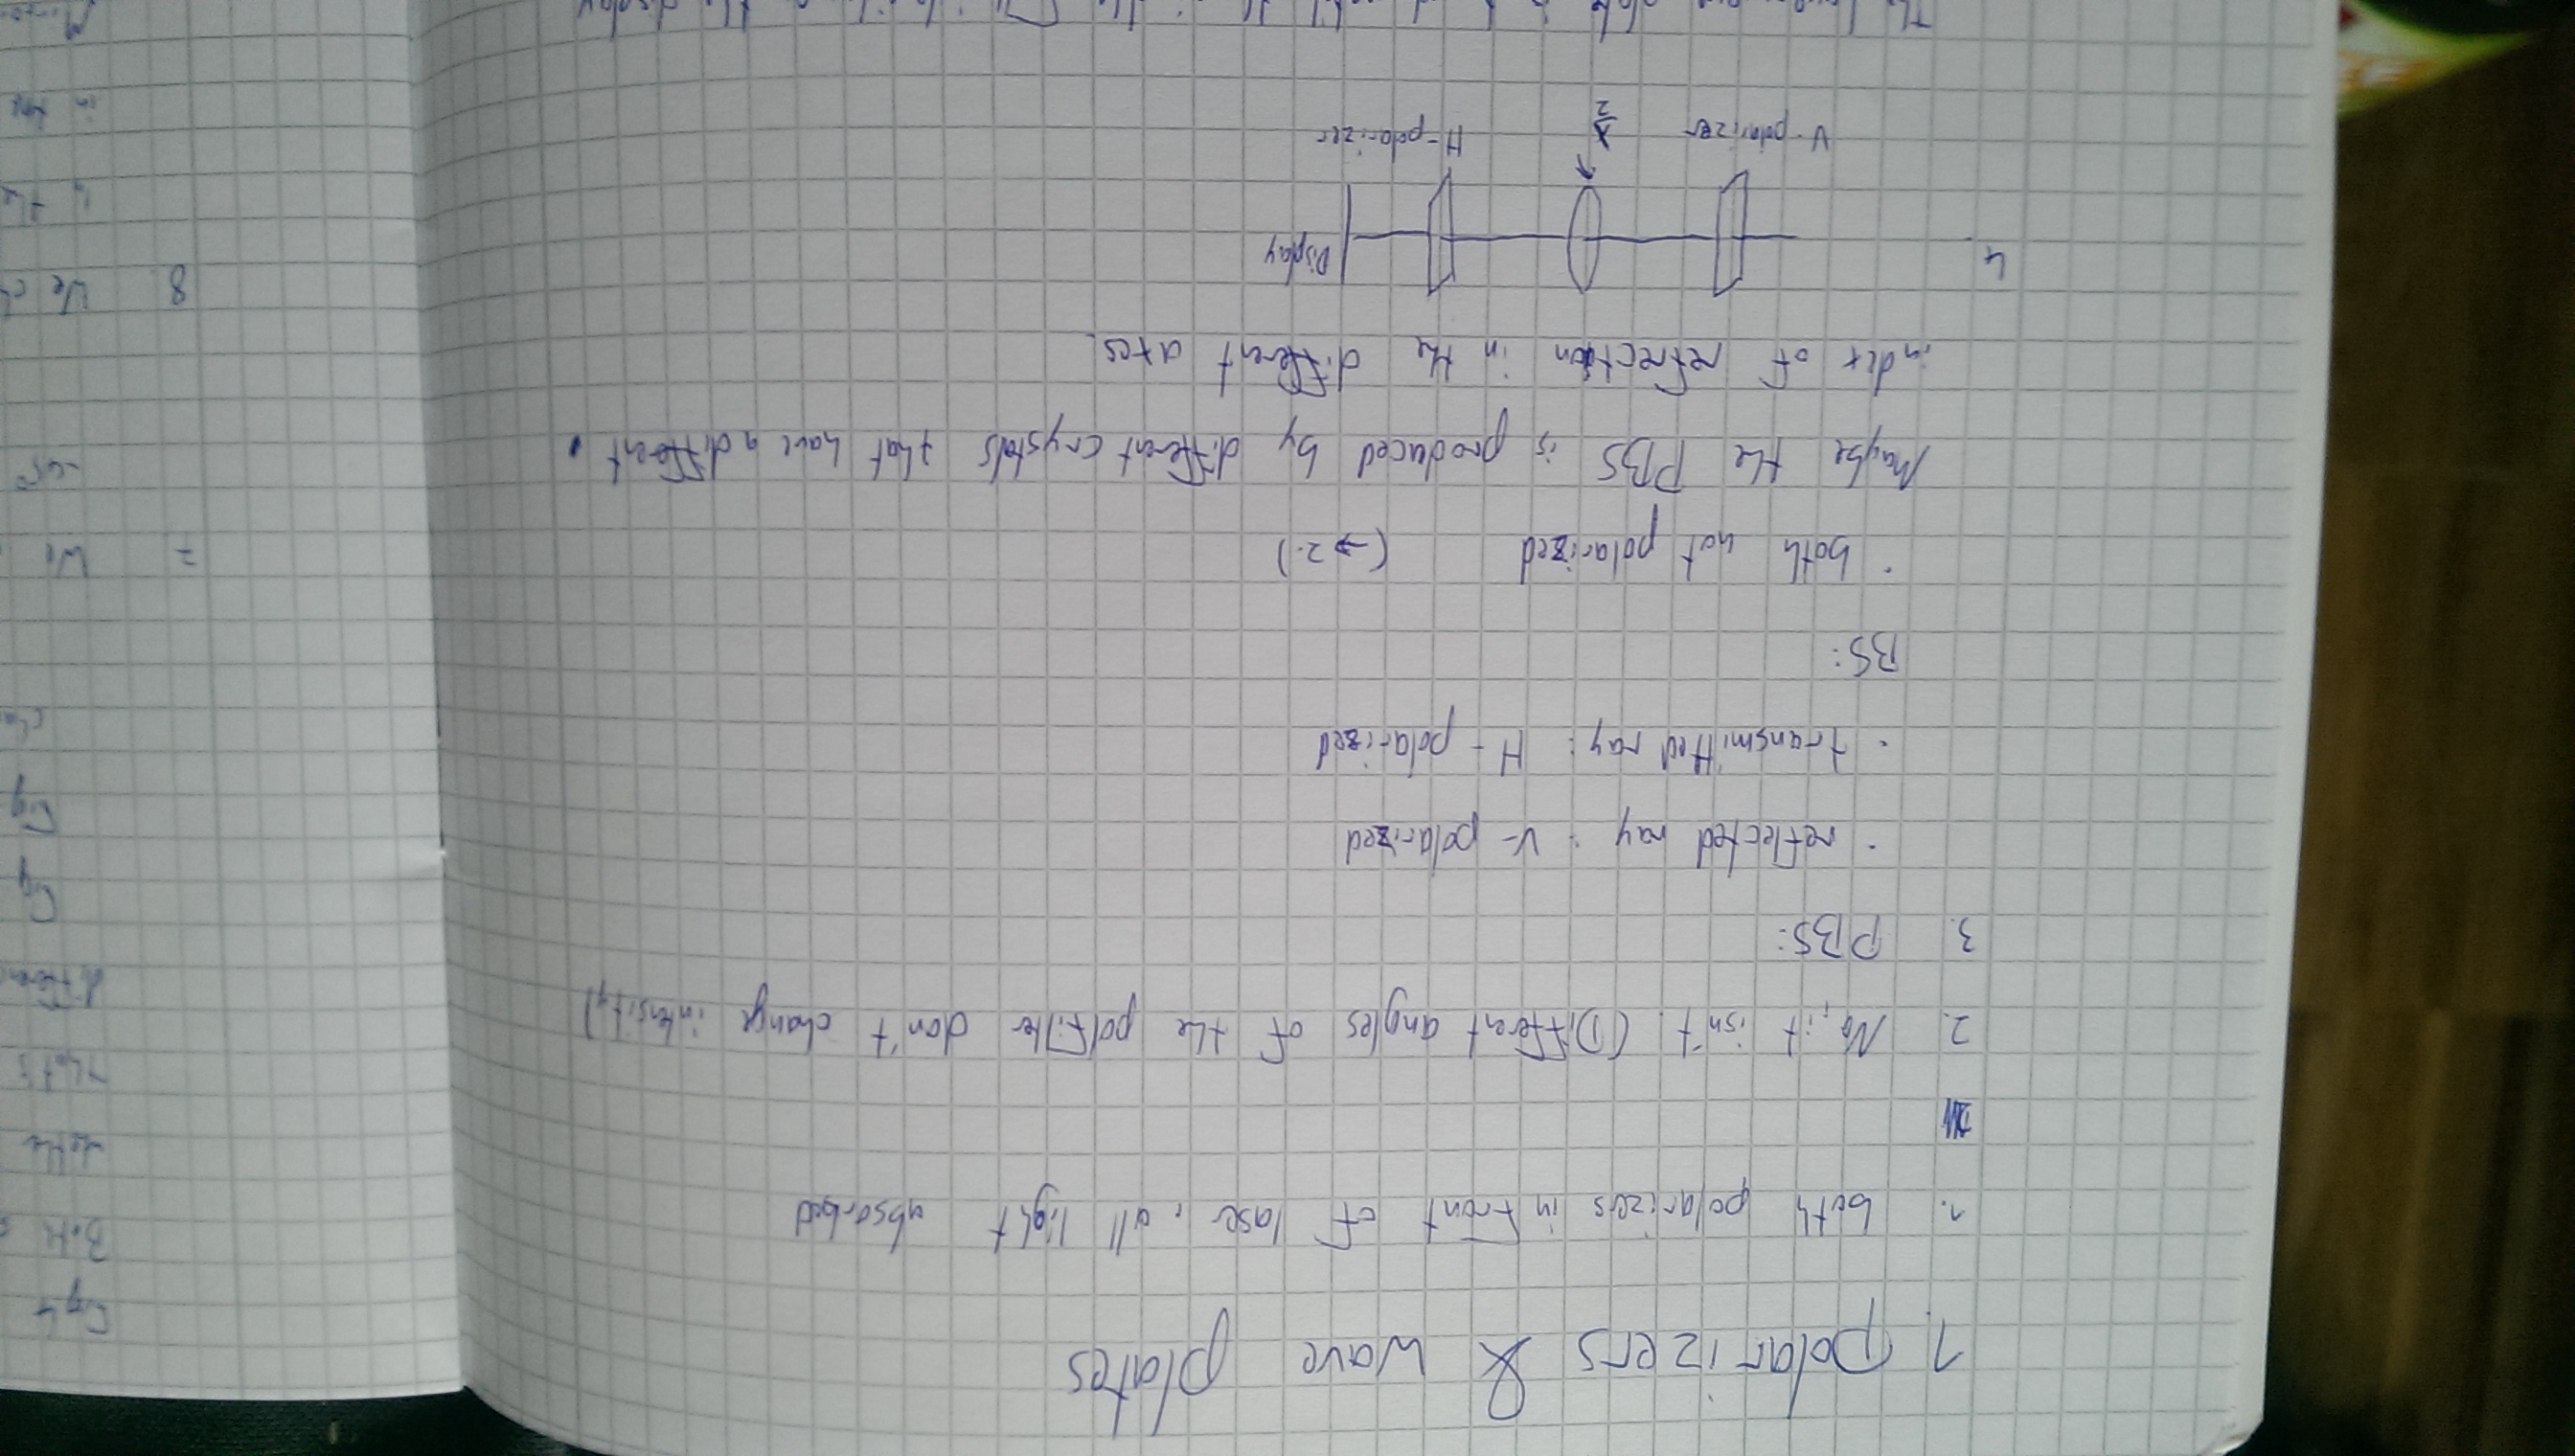 1. polarizers & wave plates
1. both polarizers in front of laser, all light absorbed
2. No, it isn't. (Different angles of the polfilter don't change intensity)
3. PBS:
· reflected ray: V-polarized
· transmitted ray: H-polarized
BS:
· both not polarized (→2.)
Maybe the PBS is produced by different crystals that have a different
index of refrection in the different axes.
4.
Display
V-polarizer
λ/2
H-polarizer
The plate is the display
Eq 4
Both
that's
differen
Eq
Eq
= We
-45°
8. We ch
in the
Mirror